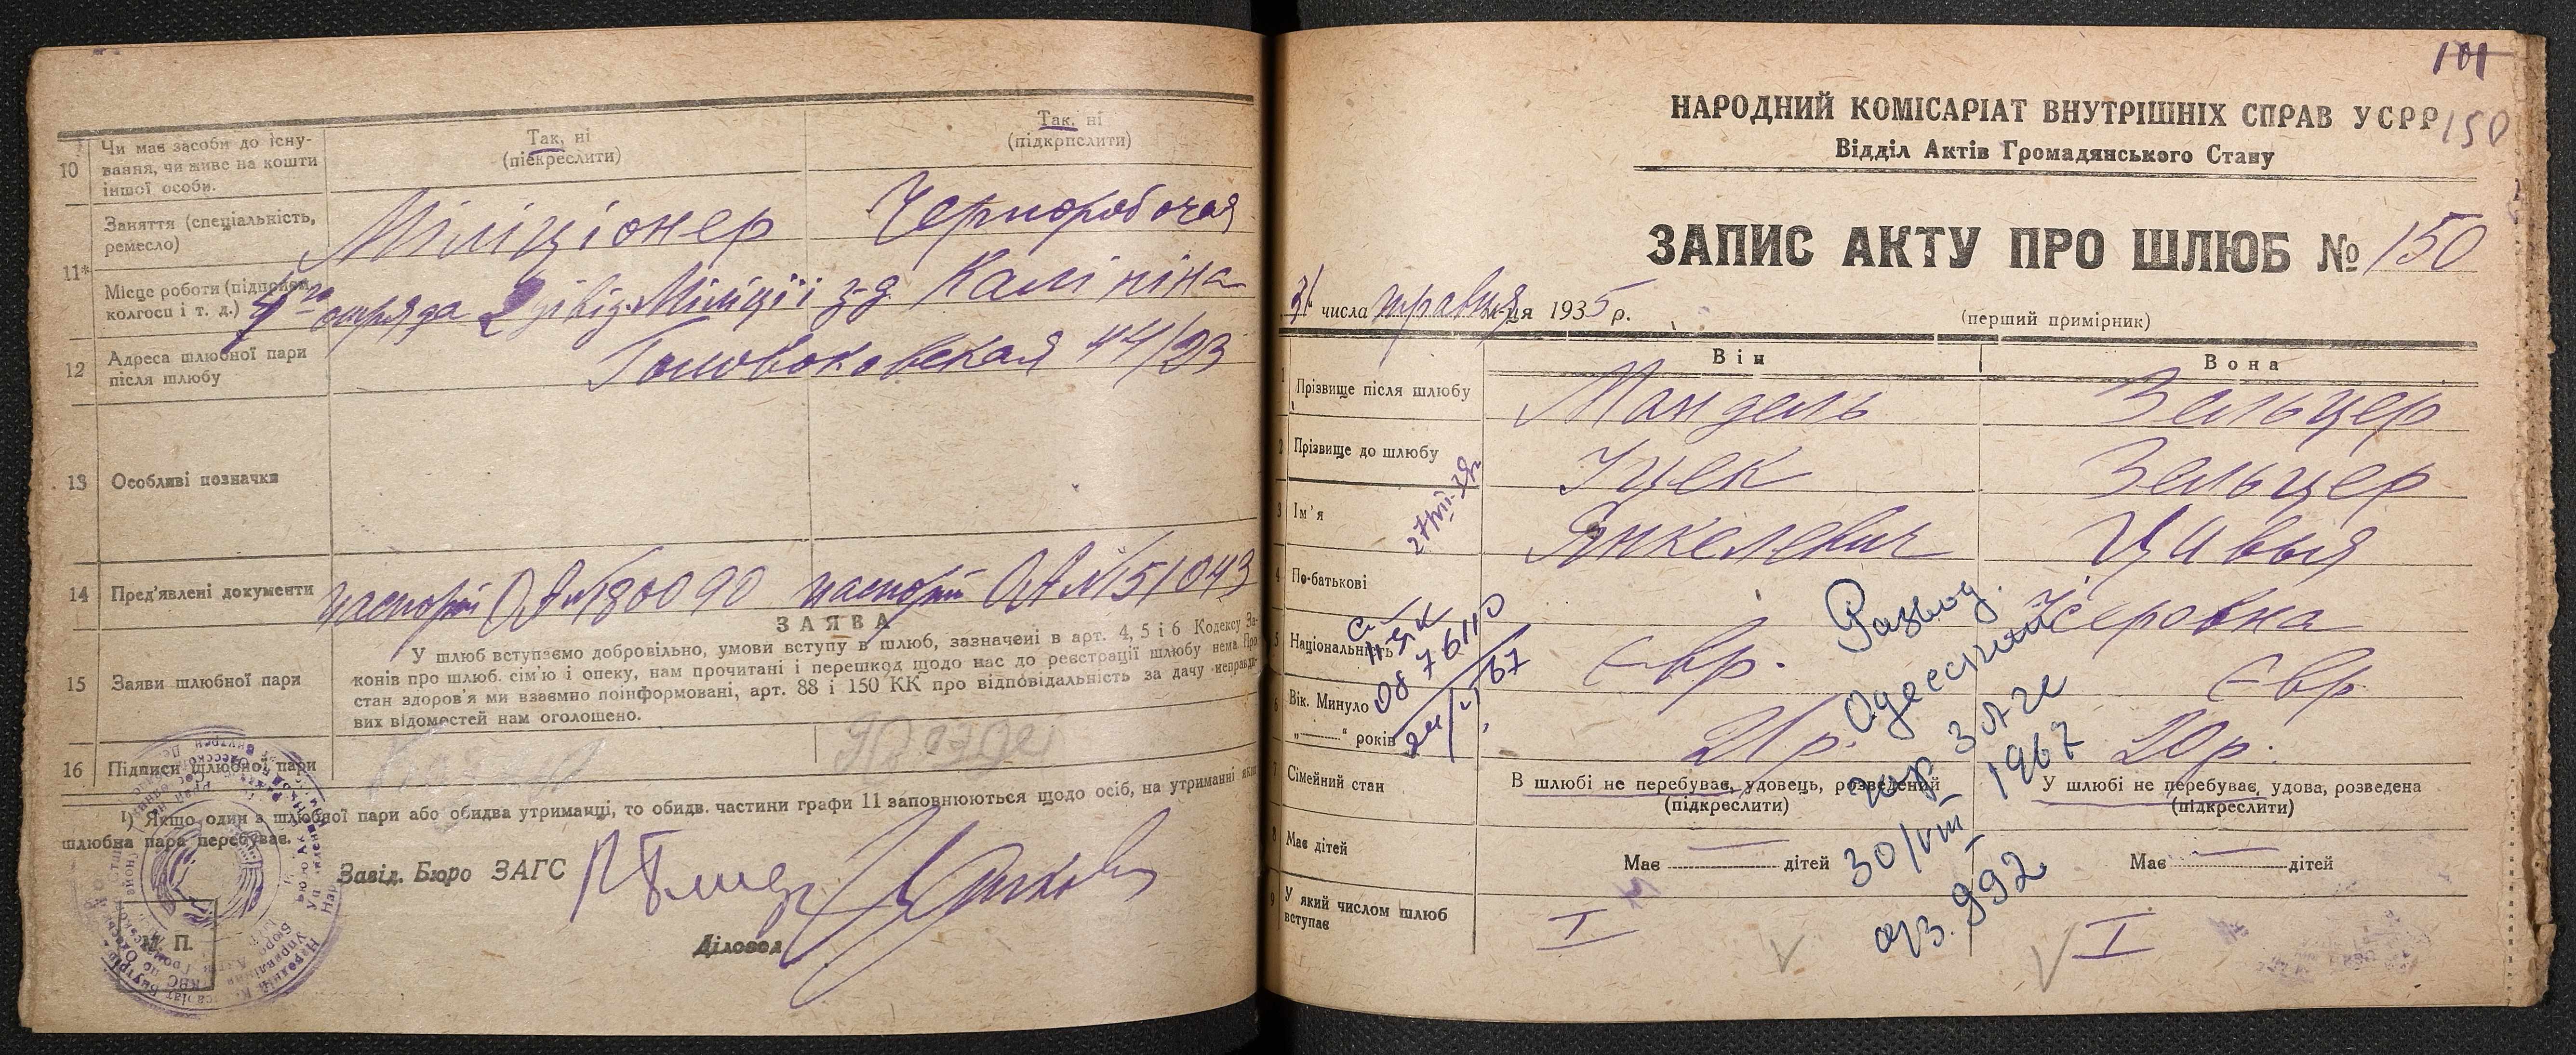 10 Чи має засоби до існу-
вання, чи живе на кошти
іншої особи.
Так, ні
(підкреслити)
Так, ні
(підкреслити)
11* Заняття (спеціальність,
ремесло)
Міліціонер
Чернорабочая
Місце роботи (підприєм.
колгосп і т. д.)
отряда 2 дівіз Міліції
з-д Калініна
12 Адреса шлюбної пари
після шлюбу
Головковская 44/23
13 Особливі позначки
14 Пред'явлені документи
паспорт ОА № 180090
паспорт ОА № 151043
15 Заяви шлюбної пари
ЗАЯВА
У шлюб вступаємо добровільно, умови вступу в шлюб, зазначені в арт. 4, 5 і 6 Кодексу За-
конів про шлюб. сім'ю і опеку, нам прочитані і перешкод щодо нас до реєстрації шлюбу нема. Про
стан здоров'я ми взаємно поінформовані, арт. 88 і 150 КК про відповідальність за дачу неправди-
вих відомостей нам оголошено.
16 Підписи шлюбної пари
¹) Якщо один з шлюбної пари або обидва утриманці, то обидв. частини графи 11 заповнюються щодо осіб, на утриманні яких
шлюбна пара перебуває.
Завід. Бюро ЗАГС
Діловод
М. П.
101
НАРОДНИЙ КОМІСАРІАТ ВНУТРІШНІХ СПРАВ УСРР
150
Відділ Актів Громадянського Стану
ЗАПИС АКТУ ПРО ШЛЮБ № 150
31 числа травня м-ця 1935 р.
(перший примірник)
Він
Вона
1 Прізвище після шлюбу
Мандель
Зельцер
2 Прізвище до шлюбу
Іцек
Зельцер
3 Ім'я
Янкелевич
Цивья
27/VII-39г
4 По-батькові
Усеровна
5 Національність
Євр.
Євр
6 Вік. Минуло
„ " років
21 р.
20 р.
7 Сімейний стан
В шлюбі не перебуває, удовець, розведений
(підкреслити)
У шлюбі не перебуває, удова, розведена
(підкреслити)
8 Має дітей
Має — дітей
Має — дітей
9 У який числом шлюб
вступає
I
I
Развод
Одесский
гор ЗАГС
30/VIII 1967
арз. 992